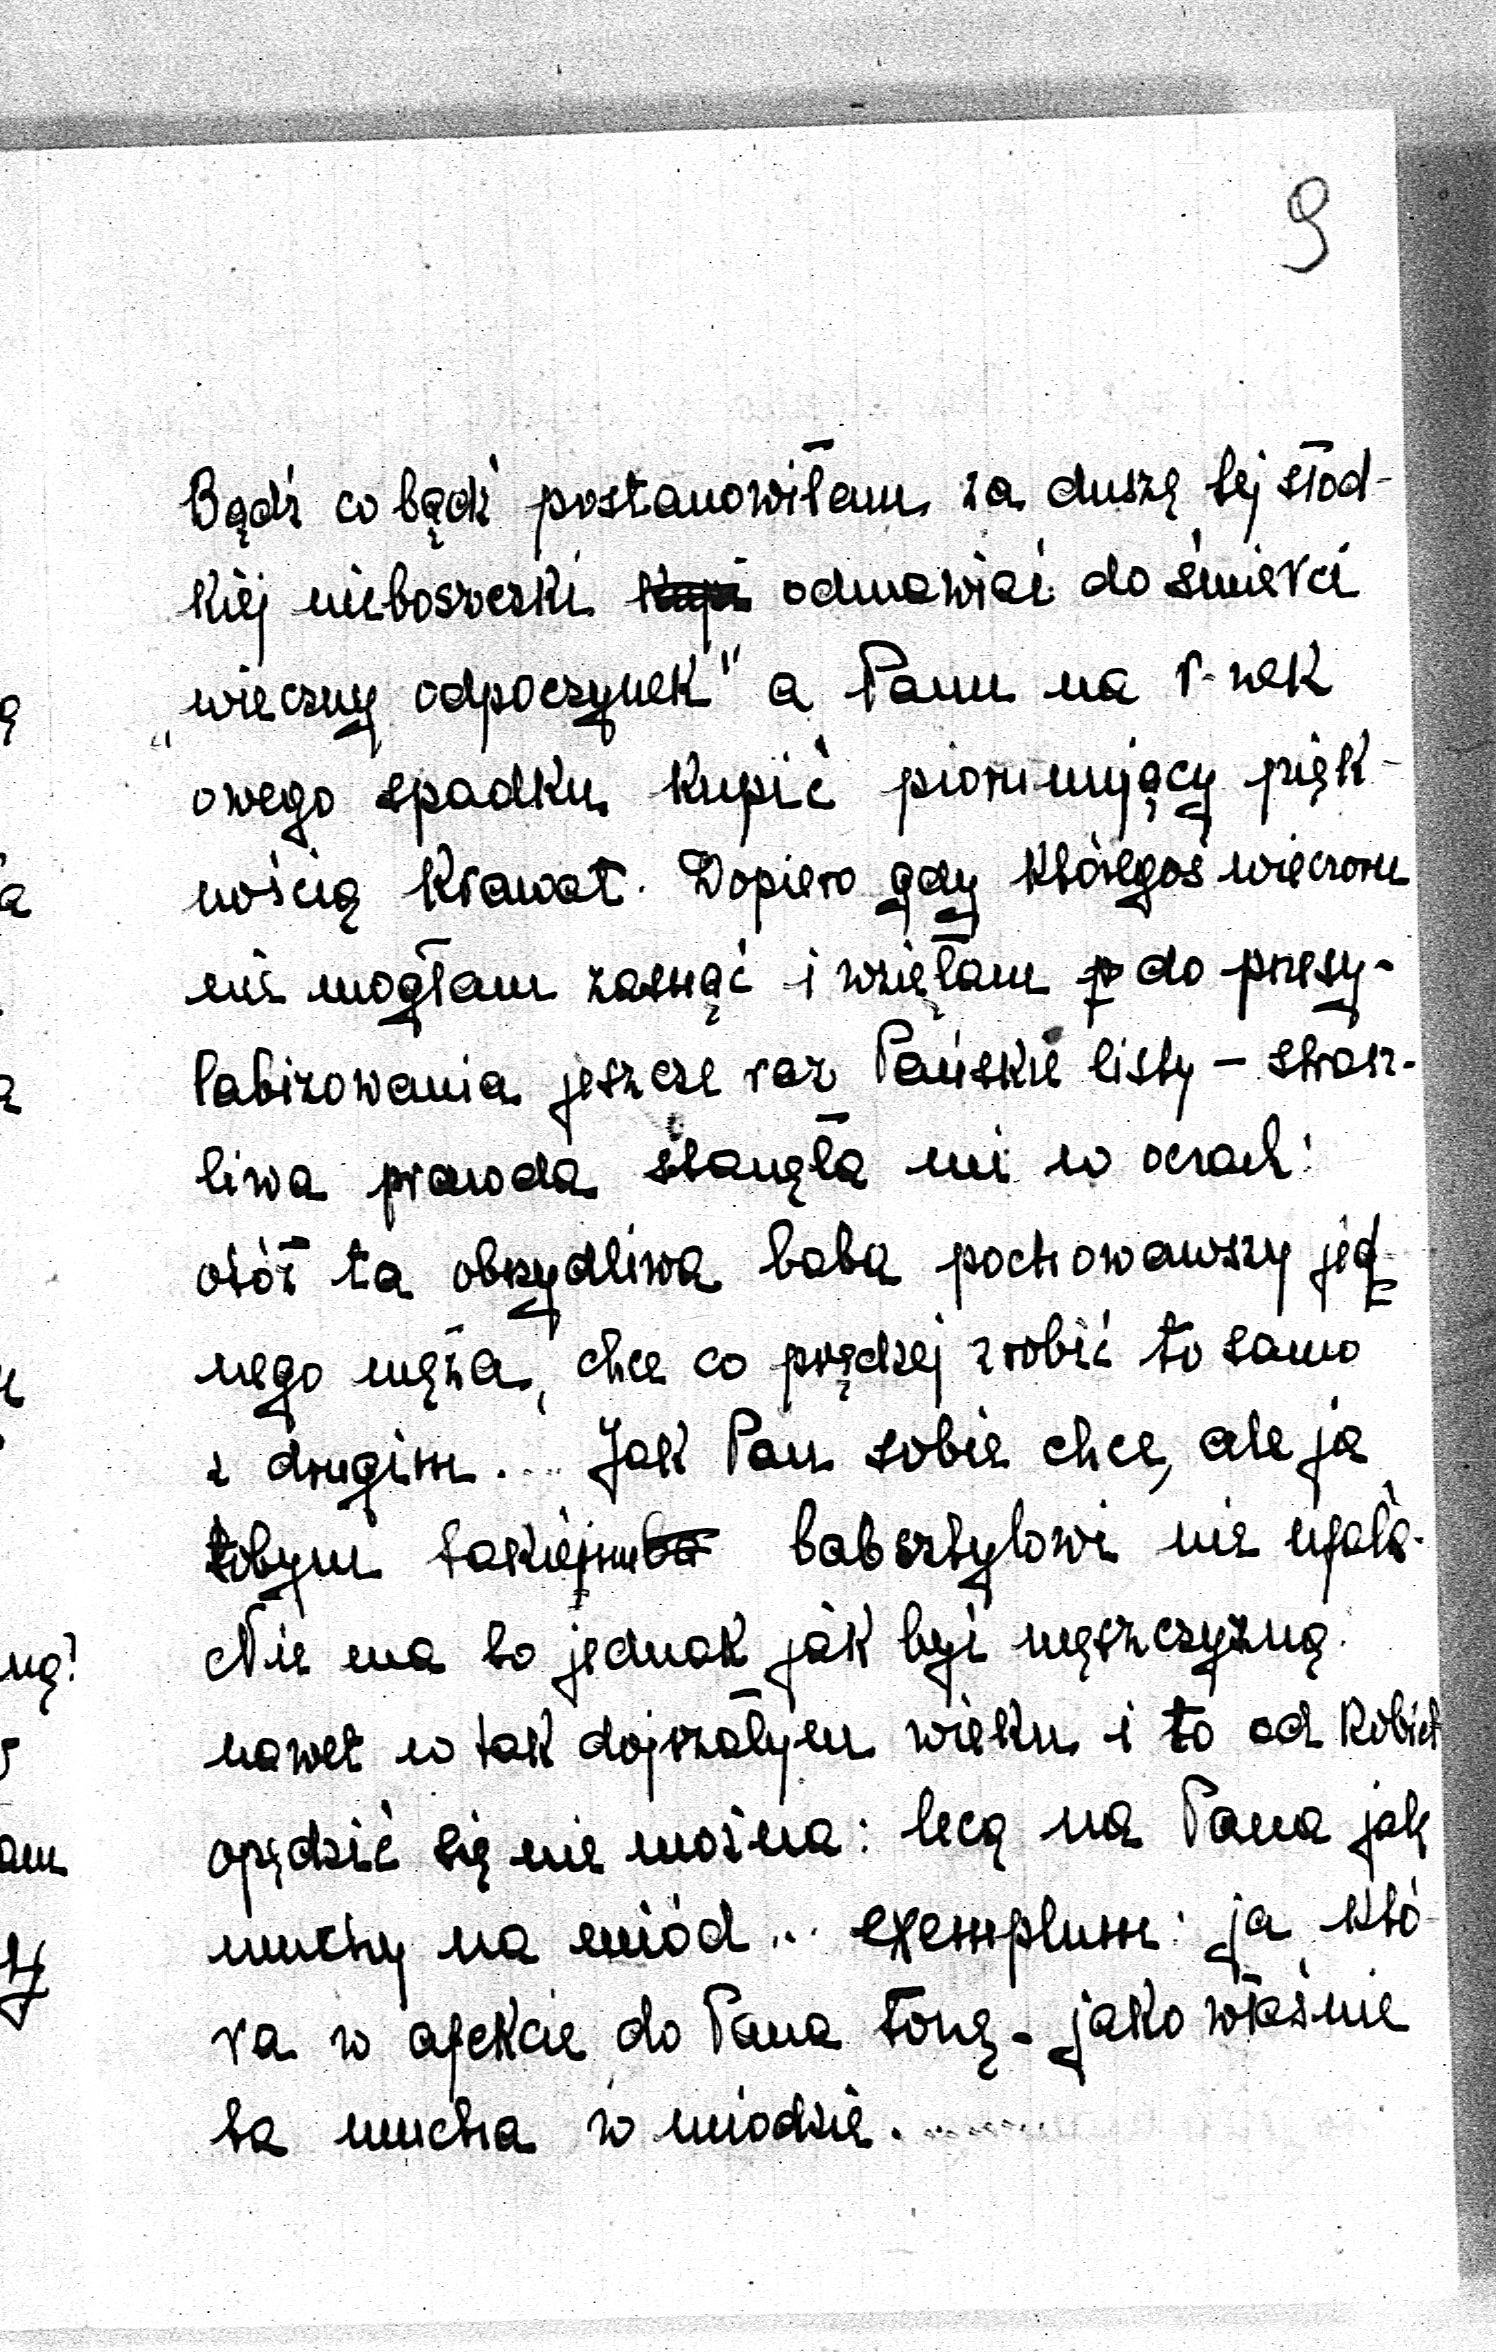 9
Bądź co bądź postanowiłam za duszę tej słod-
kiej nieboszczki odmawiać do śmierci
„wieczny odpoczynek" a Panu na r-nek
owego spadku kupić piorunujący pięk-
nością krawat. Dopiero gdy któregoś wieczoru
nie mogłam zasnąć i wzięłam p do przesy-
labizowania jeszcze raz Pańskie listy – strasz-
liwa prawda stanęła mi w oczach:
otóż ta obrzydliwa baba pochowawszy jed-
nego męża, chce co prędzej zrobić to samo
z drugim.... Jak Pan sobie chce, ale ja
tobym takiejmu babsztylowi nie ufała.
Nie ma to jednak jak być męszczyzną.
nawet w tak dojrzałym wieku i to od kobiet
opędzić się nie można: lecą na Pana jak
muchy na miód... exemplum: ja któ-
ra w afekcie do Pana tonę – jako właśnie
ta mucha w miodzie.